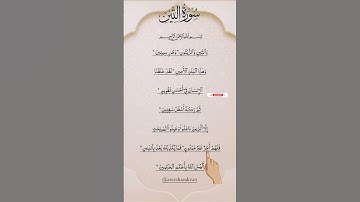 سُورَةُ التِّين
بِسْمِ اللَّهِ الرَّحْمَٰنِ الرَّحِيمِ
وَالتِّينِ وَالزَّيْتُونِ وَطُورِ سِينِينَ
وَهَٰذَا الْبَلَدِ الْأَمِينِ لَقَدْ خَلَقْنَا
الْإِنسَانَ فِي أَحْسَنِ تَقْوِيمٍ
ثُمَّ رَدَدْنَاهُ أَسْفَلَ سَافِلِينَ
إِلَّا الَّذِينَ آمَنُوا وَعَمِلُوا الصَّالِحَاتِ
فَلَهُمْ أَجْرٌ غَيْرُ مَمْنُونٍ فَمَا يُكَذِّبُكَ بَعْدُ بِالدِّينِ
أَلَيْسَ اللَّهُ بِأَحْكَمِ الْحَاكِمِينَ